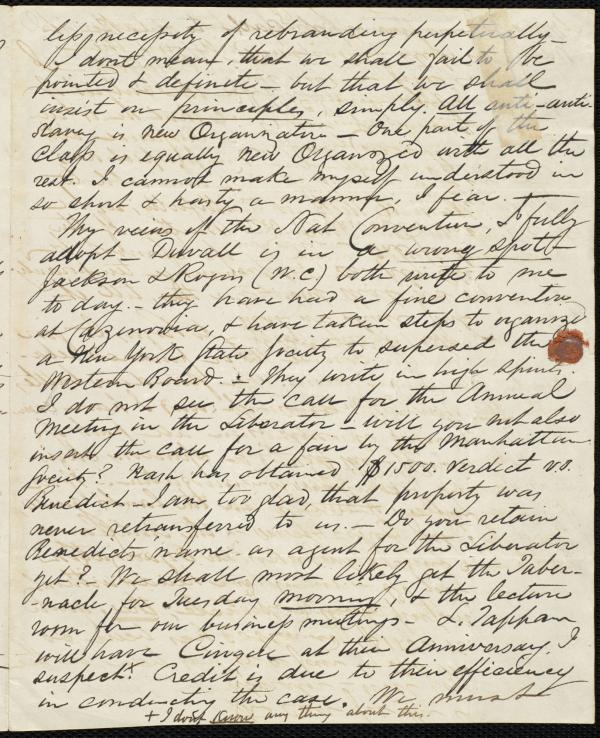 lip necessity of rebranding perpetually -
I dont mean, that we shall fail to be
pointed & definite - but that we shall
insist on principles, simply. All anti-anti-
slavery is new Organization - One part of the
class is equally new Organized with all the
rest. I cannot make myself understood in
so short & hasty a manner, I fear. -
My views of the Nat Convention, I fully
adopt - Duvall is in a wrong spot -
Jackson & Rogers (N.C.) both write to me
to day - they have had a fine convention
at Cazenovia, & have taken steps to organize
a New York State Society to supersed the
Western Board. - They write in high spirits.
I do not see the call for the Annual
Meeting in the Liberator - will you not also
insert the call for a fair by the Manhattan
Society? Nash has obtained $1500. verdict vs.
Benedict - I am too glad, that property was
never retransferred to us. - Do you retain
Benedicts name as agent for the Liberator
yet? - We shall most likely get the Taber-
-nacle, for Tuesday morning, & the lecture
room for our business meetings - L. Tappan
will have Cinque at their Anniversary. I
suspect.+ Credit is due to their efficiency
in conducting the case. We must
+ I don't know any thing about this.